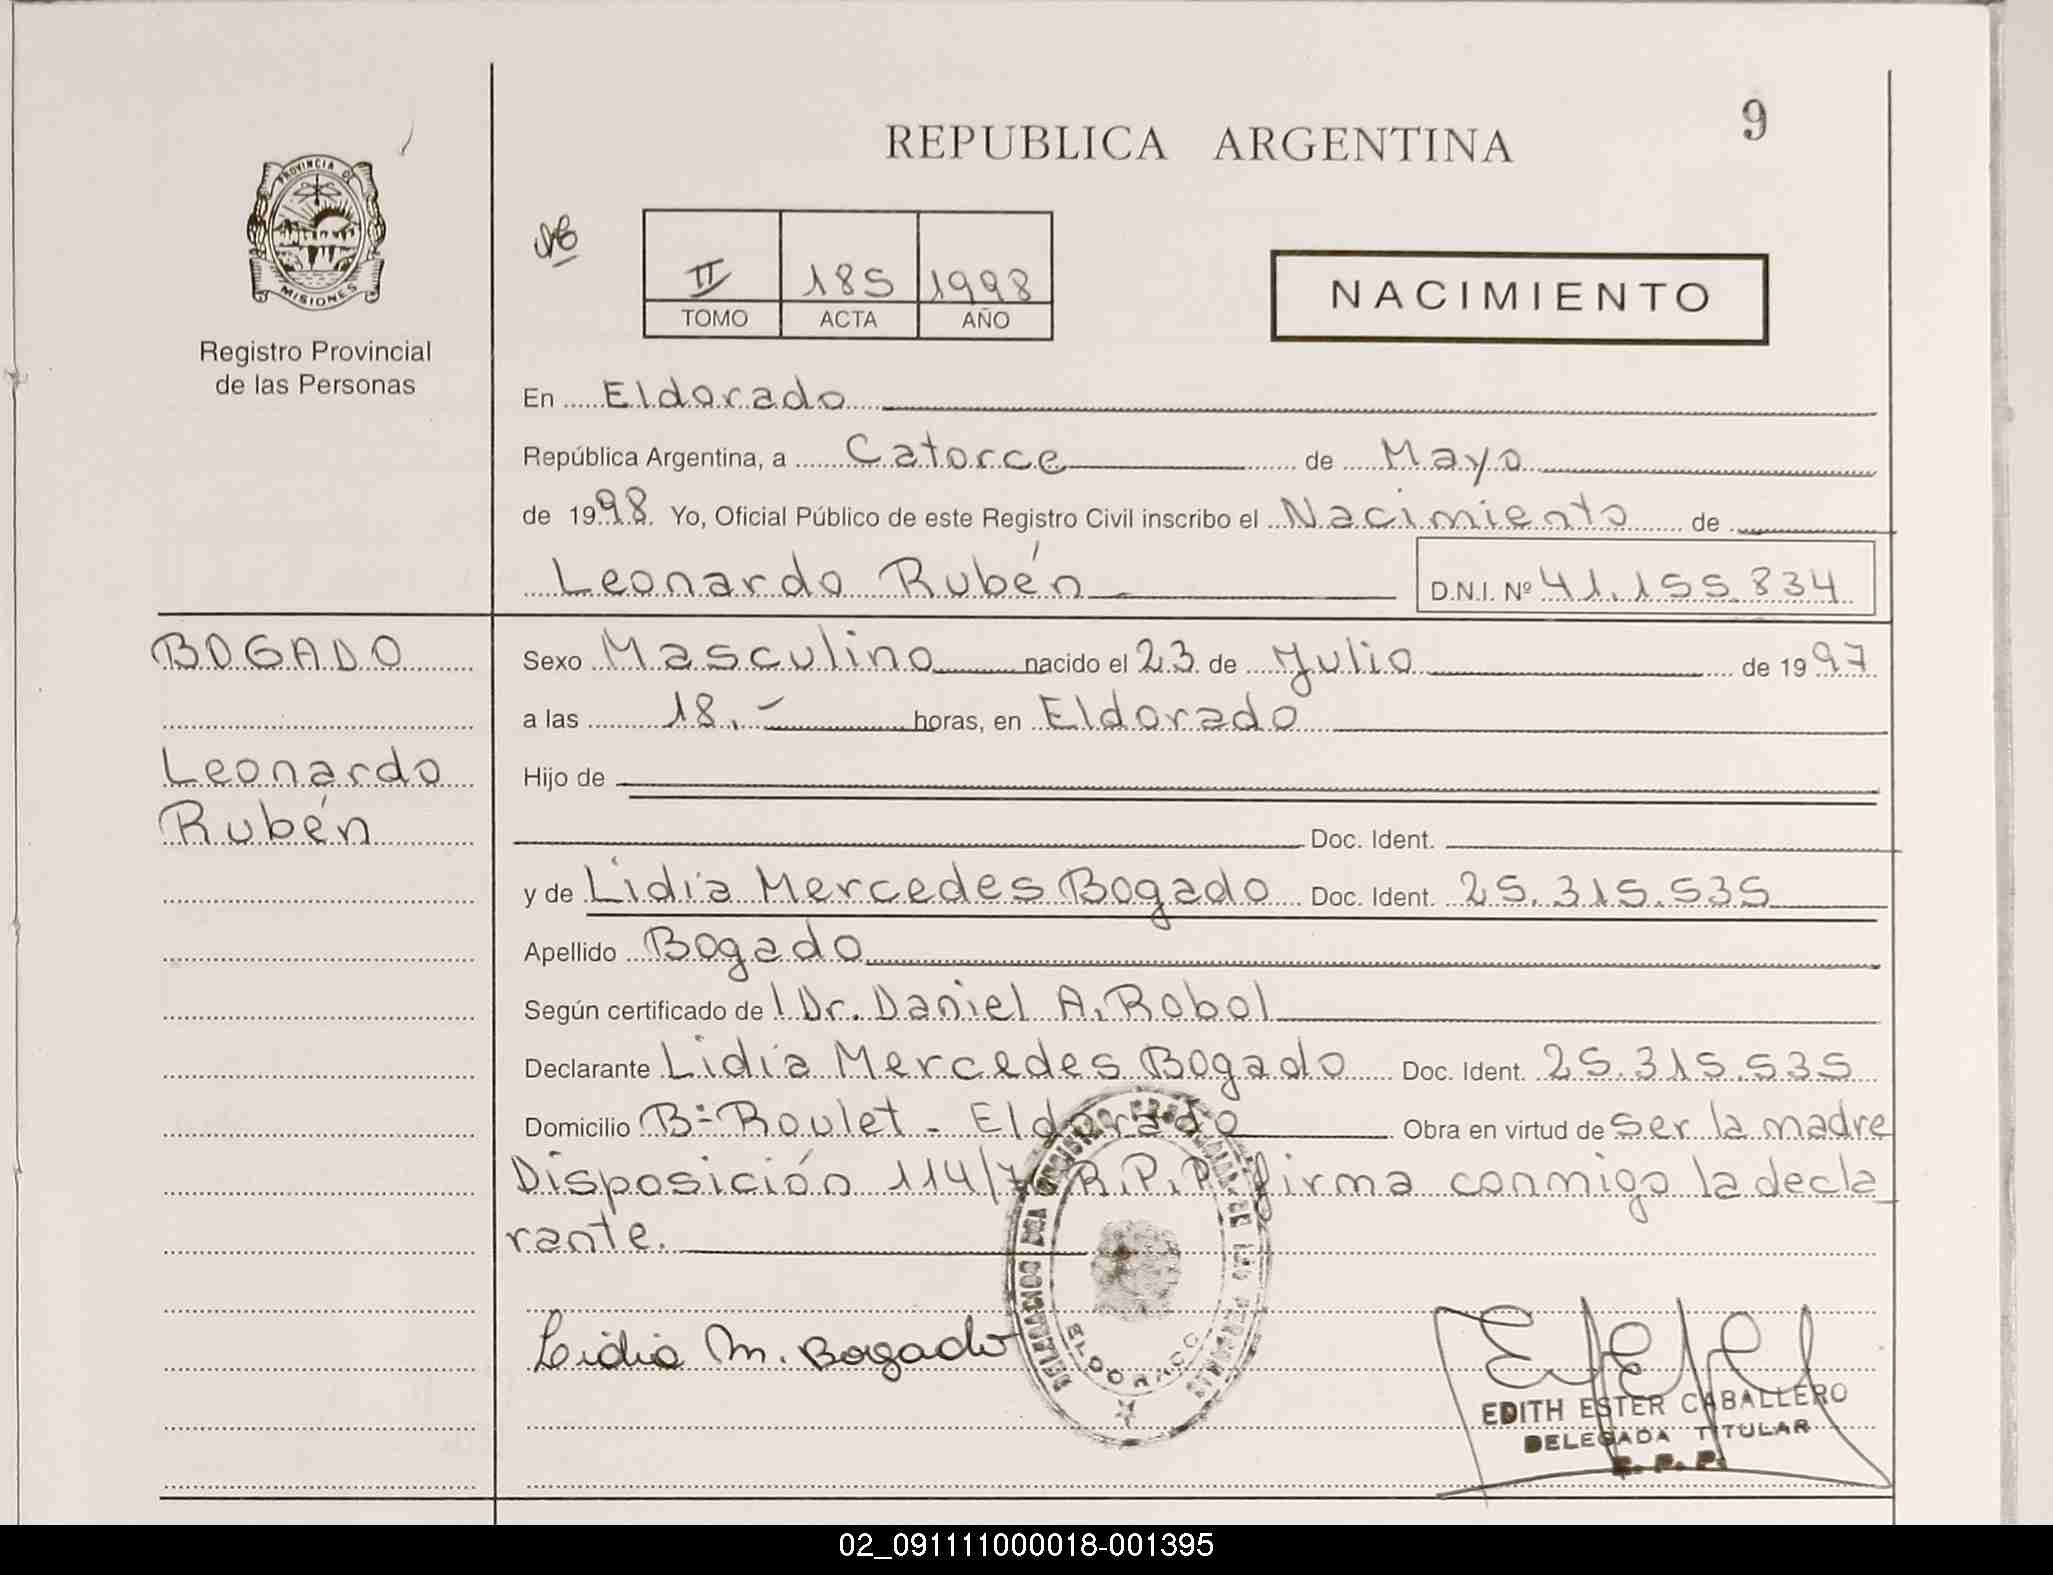 REPUBLICA ARGENTINA
9
PROVINCIA DE
MISIONES
Registro Provincial
de las Personas
II 185 1998
TOMO ACTA AÑO
NACIMIENTO
En Eldorado
República Argentina, a Catorce de Mayo
de 1998. Yo, Oficial Público de este Registro Civil inscribo el Nacimiento de
Leonardo Rubén D.N.I. Nº 41.155.834
BOGADO
Leonardo
Rubén
Sexo Masculino nacido el 23 de Julio de 1997
a las 18.- horas, en Eldorado
Hijo de
Doc. Ident.
y de Lidia Mercedes Bogado Doc. Ident. 25.315.535
Apellido Bogado
Según certificado de l Dr. Daniel A. Robol
Declarante Lidia Mercedes Bogado Doc. Ident. 25.315.535
Domicilio Bº Roulet - Eldorado Obra en virtud de ser la madre
Disposición 114/7 R.P.P. firma conmigo la decla
rante.
Lidia M. Bogado
ELDORADO
EDITH ESTER CABALLERO
DELEGADA TITULAR
R.P.P.
02_091111000018-001395